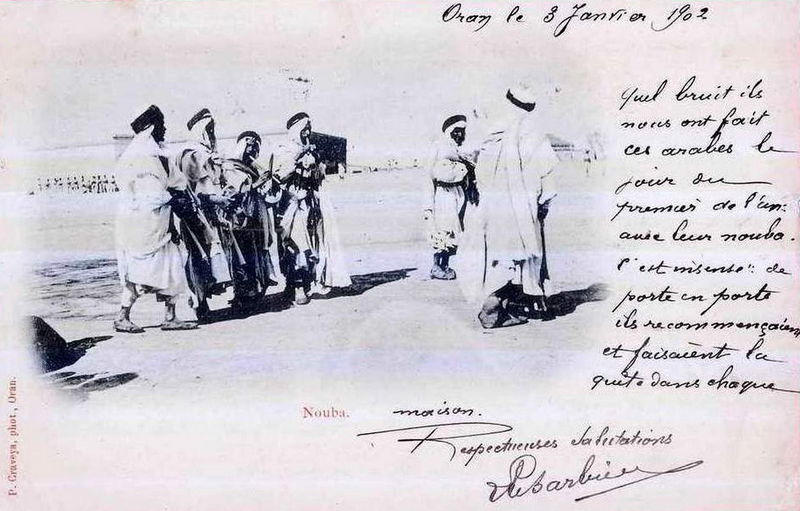 Oran le 3 Janvier 1902
Quel bruit ils
nous ont fait
ces arabes le
jour du
premier de l'an
avec leur nouba.
C'est insensé: de
porte en porte
ils recommençaient
et faisaient la
quête dans chaque
maison.
Respectueuses salutations
Nouba.
P. Graveya, phot., Oran.